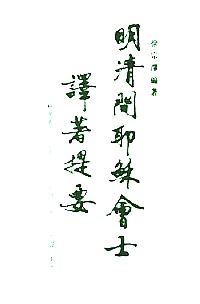 徐宗澤編著
明清間耶穌會士
譯著提要